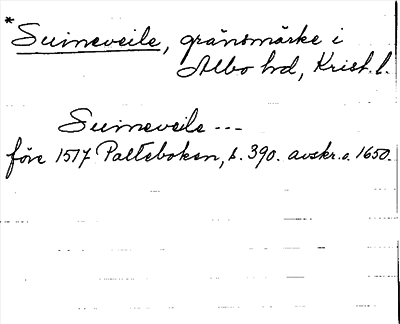 * Suineveile, gränsmärke i
Albo hd, Krist. l.
Suineveile ---
före 1517 Palteboken, s. 390. avskr. o. 1650.